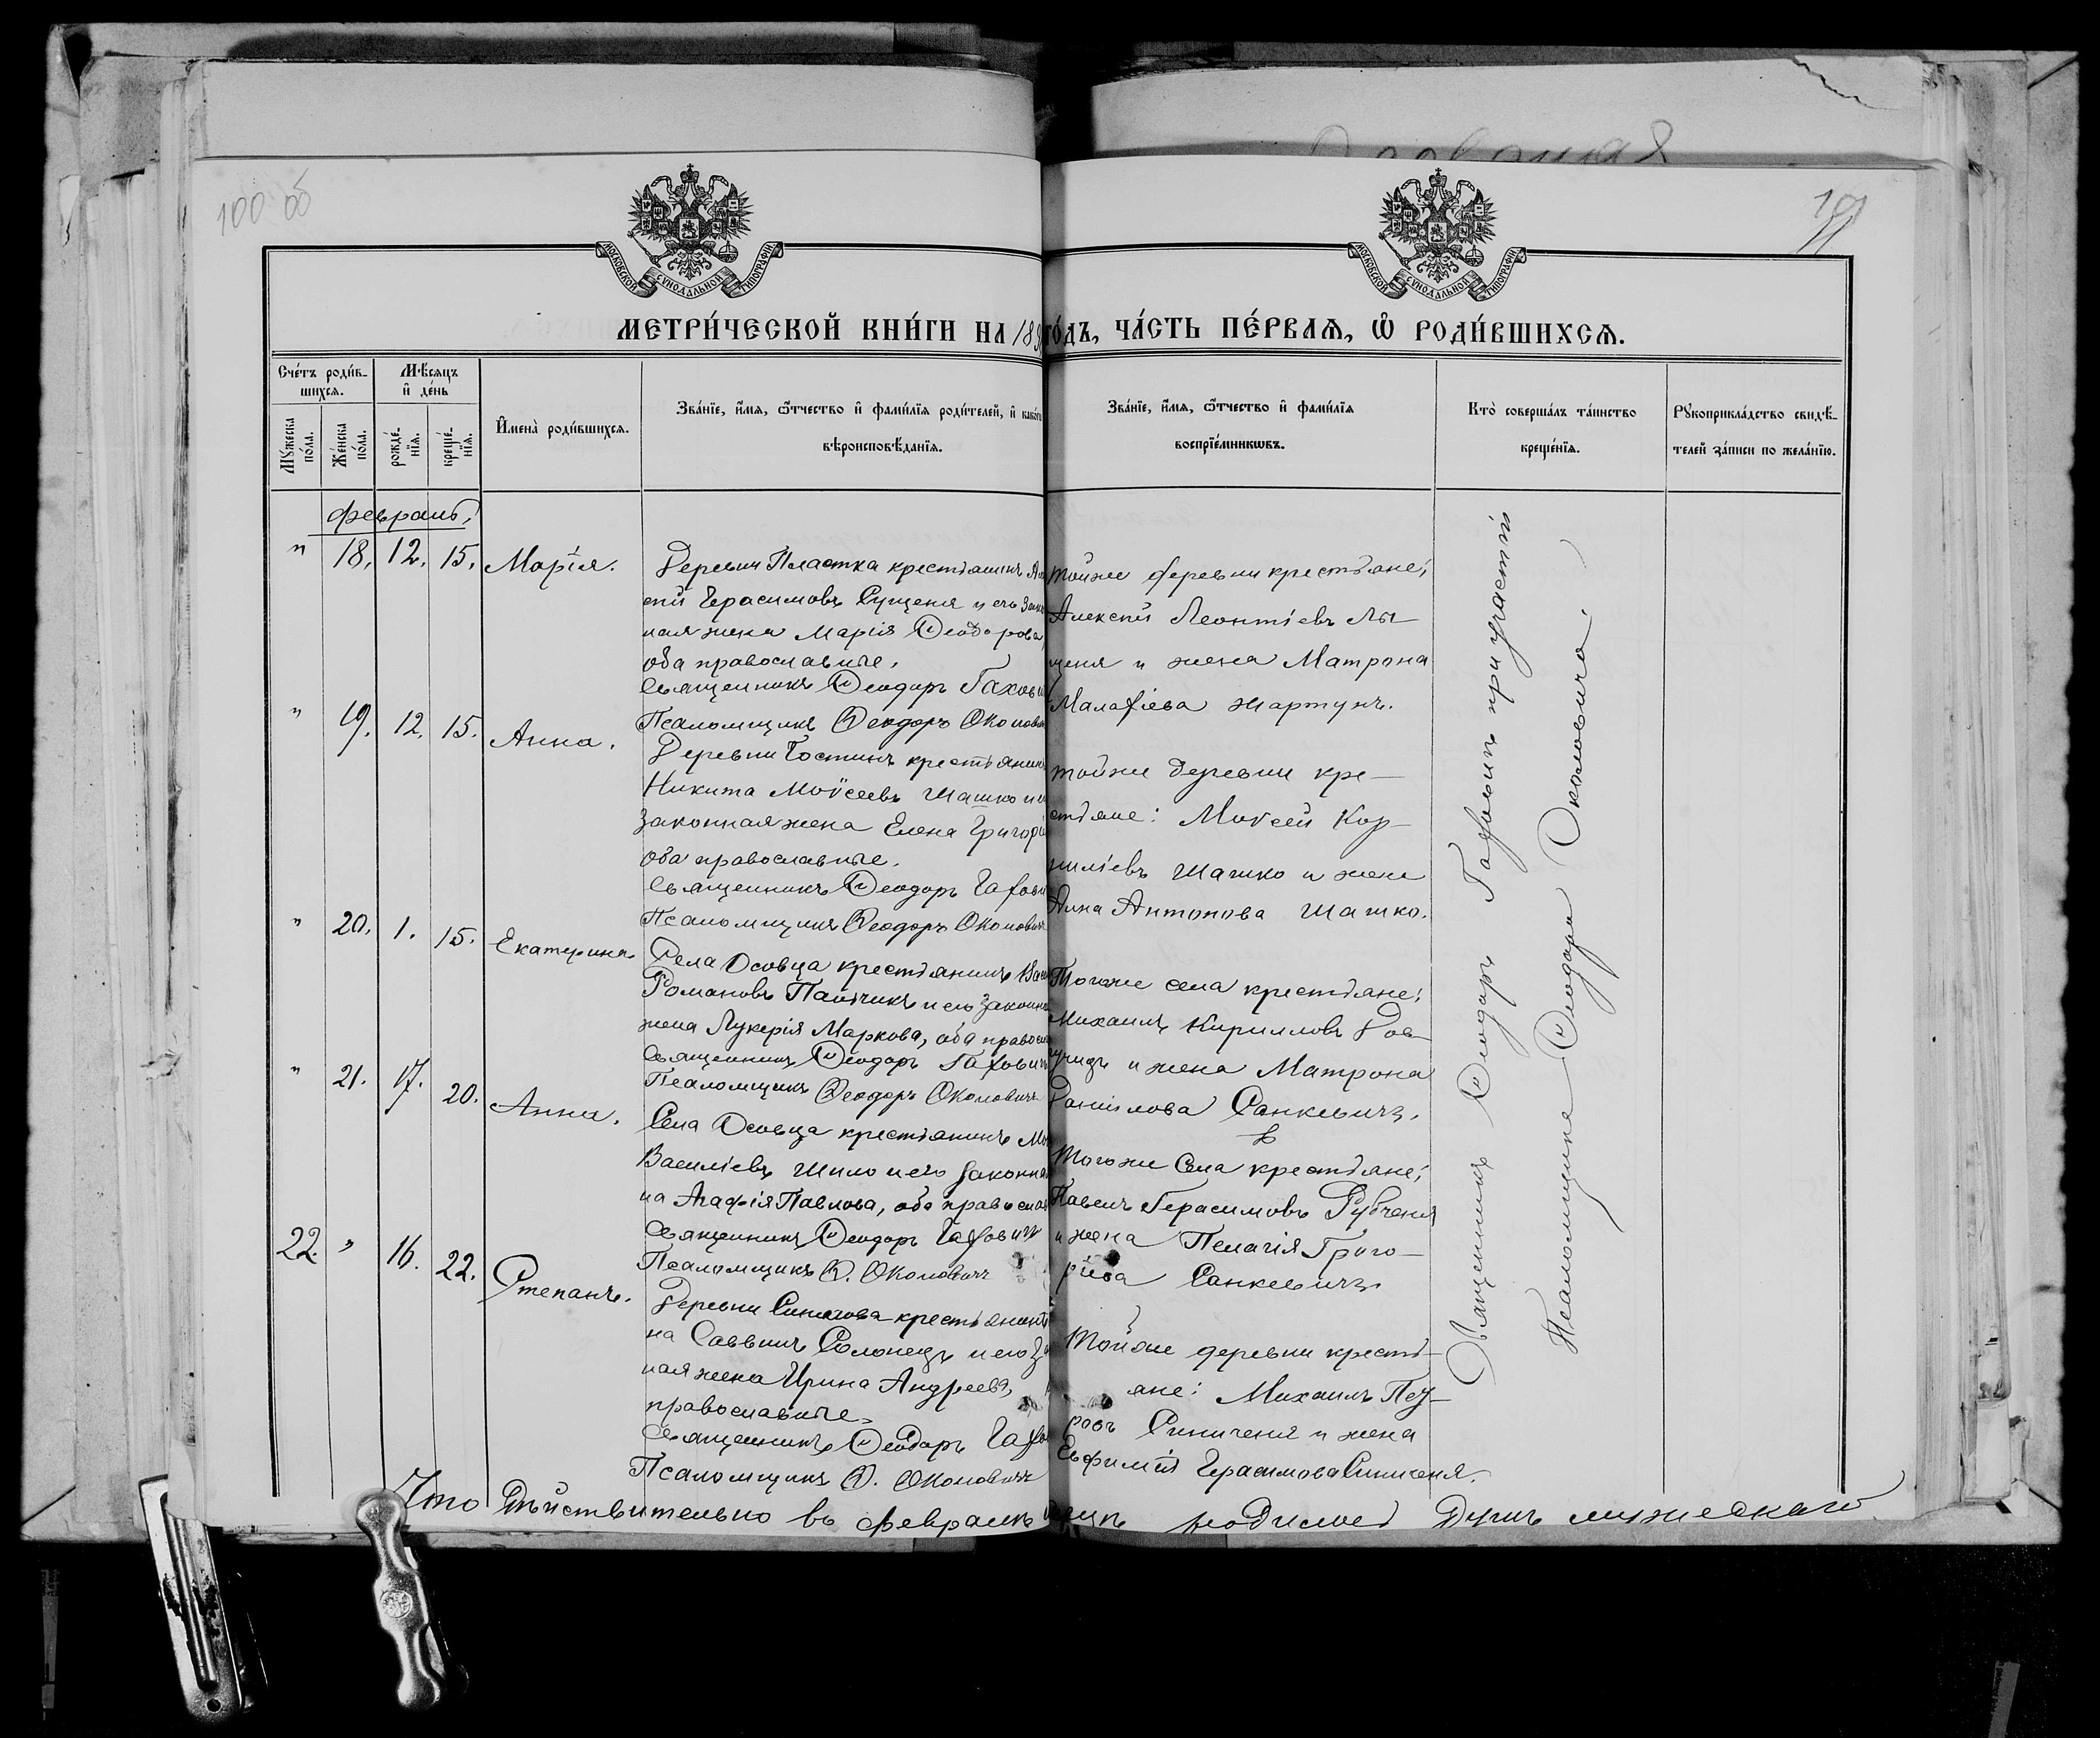 100 об
МОСКОВСКОЙ СУНОДАЛЬНОЙ ТИПОГРАФІИ
МОСКОВСКОЙ СУНОДАЛЬНОЙ ТИПОГРАФІИ
МЕТРИ́ЧЕСКОЙ КНИ́ГИ НА 189 ГО́ДЪ, ЧА́СТЬ ПЕ́РВАЯ, Ѽ РОДИ́ВШИХСЯ.
Сче́тъ роди́в-
шихся.
Мꙋ́жеска по́ла.
Же́нска по́ла.
Мѣ́сяцъ
и҆ де́нь
рожде́-
нїя.
креще́-
нїя.
И҆мена̀ роди́вшихся.
Зва́нїе, и҆́мя, ѻ҆́тчество и҆ фами́лїя роди́телей, и҆ како́гѡ
вѣроисповѣ́данїя.
Зва́нїе, и҆́мя, ѻ҆́тчество и҆ фами́лїя
воспрїе́мникѡвъ.
Кто̀ соверша́лъ та́инство
креще́нїя.
Рꙋкоприкла́дство свидѣ́-
телей за́писи по жела́нїю.
Февраль,
" 18. 12. 15. Марія.
Деревни Пластка крестьянинъ Але
ксѣй Герасимовъ Сущеня и его Закон
ная жена Марія Ѳеодорова,
оба православные.
Священникъ Ѳеодоръ Гахови
Псаломщикъ Ѳеодоръ Околови
Тойже деревни крестьяне;
Алексѣй Леонтіевъ Лы
щеня и жена Матрона
Малахіева Жартунъ.
" 19. 12. 15. Анна.
Деревни Гостинъ крестьянинъ
Никита Моѵсеевъ Шашко и
законная жена Елена Григорі
оба православные.
Священникъ Ѳеодоръ Гахови
Псаломщикъ Ѳеодоръ Околович
тойже деревни кре-
стьяне: Моѵсей Кор-
ниліевъ Шашко и жена
Анна Антонова Шашко.
" 20. 1. 15. Екатерина.
Села Осовца крестьянинъ Васи
Романовъ Пальчикъ и его законна
жена Лукерія Маркова, оба правосл
Священникъ Ѳеодоръ Гахович
Псаломщикъ Ѳеодоръ Околовичъ
Тогоже села крестьяне:
Михаилъ Кирилловъ
и жена Матрона
Даніилова Санкевичъ.
" 21. 17. 20. Анна.
Села Осовца крестьянинъ
Василіевъ Шило и его законна
на Агафія Павлова, оба правосла
Священникъ Ѳеодоръ Гахович
Псаломщикъ Ѳ. Околовичъ
Тогоже Села крестьяне;
Павелъ Герасимовъ Рубченя
и жена Пелагія Григо-
рьева Санкевичъ
22. " 16. 22. Степанъ.
Деревни крестьянинъ
на Саввинъ Солонецъ и его За
ная жена Ирина Андреева,
православные.
Священникъ Ѳеодоръ Гахо
Псаломщикъ Ѳ. Околовичъ
Тойже деревни кресть-
яне: Михаилъ Пет-
ровъ Синиченя и жена
Евфимія Герасимова Синиченя.
Священникъ Ѳеодоръ Гаховичъ при участіи
Псаломщика Ѳеодора Околовича.
Что Дѣйствительно въ февралѣ родилось Душъ мужескаго